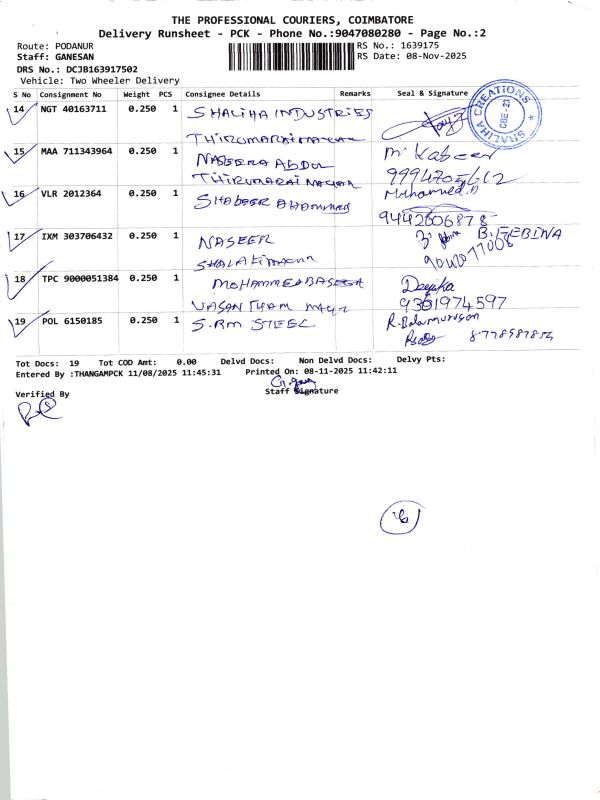 THE PROFESSIONAL COURIERS, COIMBATORE
Delivery Runsheet - PCK - Phone No.:9047080280 - Page No.:2
Route: PODANUR RS No.: 1639175
Staff: GANESAN RS Date: 08-Nov-2025
DRS No.: DCJB163917502
Vehicle: Two Wheeler Delivery
S No Consignment No Weight PCS Consignee Details Remarks Seal & Signature
14 NGT 40163711 0.250 1 SHALIHA INDUSTRIES
SHALIHA CREATIONS CBE-23
THIRUMARAINAGAR
15 MAA 711343964 0.250 1 NASEERA ABDUL Mr Kabeer
THIRUMARAI NAGAR 9994705612
16 VLR 2012364 0.250 1 SHABEER AHAMMED Mohammed.
9442606878
17 IXM 303706432 0.250 1 NASEER B. JEBINA
18 TPC 9000051384 0.250 1 MOHAMMED BASEER
VASANTHAM 9361974597
19 POL 6150185 0.250 1 S.RM STEEL R. Balamurugan
Tot Docs: 19 Tot COD Amt: 0.00 Delvd Docs: Non Delvd Docs: Delvy Pts:
Entered By :THANGAMPCK 11/08/2025 11:45:31 Printed On: 08-11-2025 11:42:11
Verified By Staff Signature